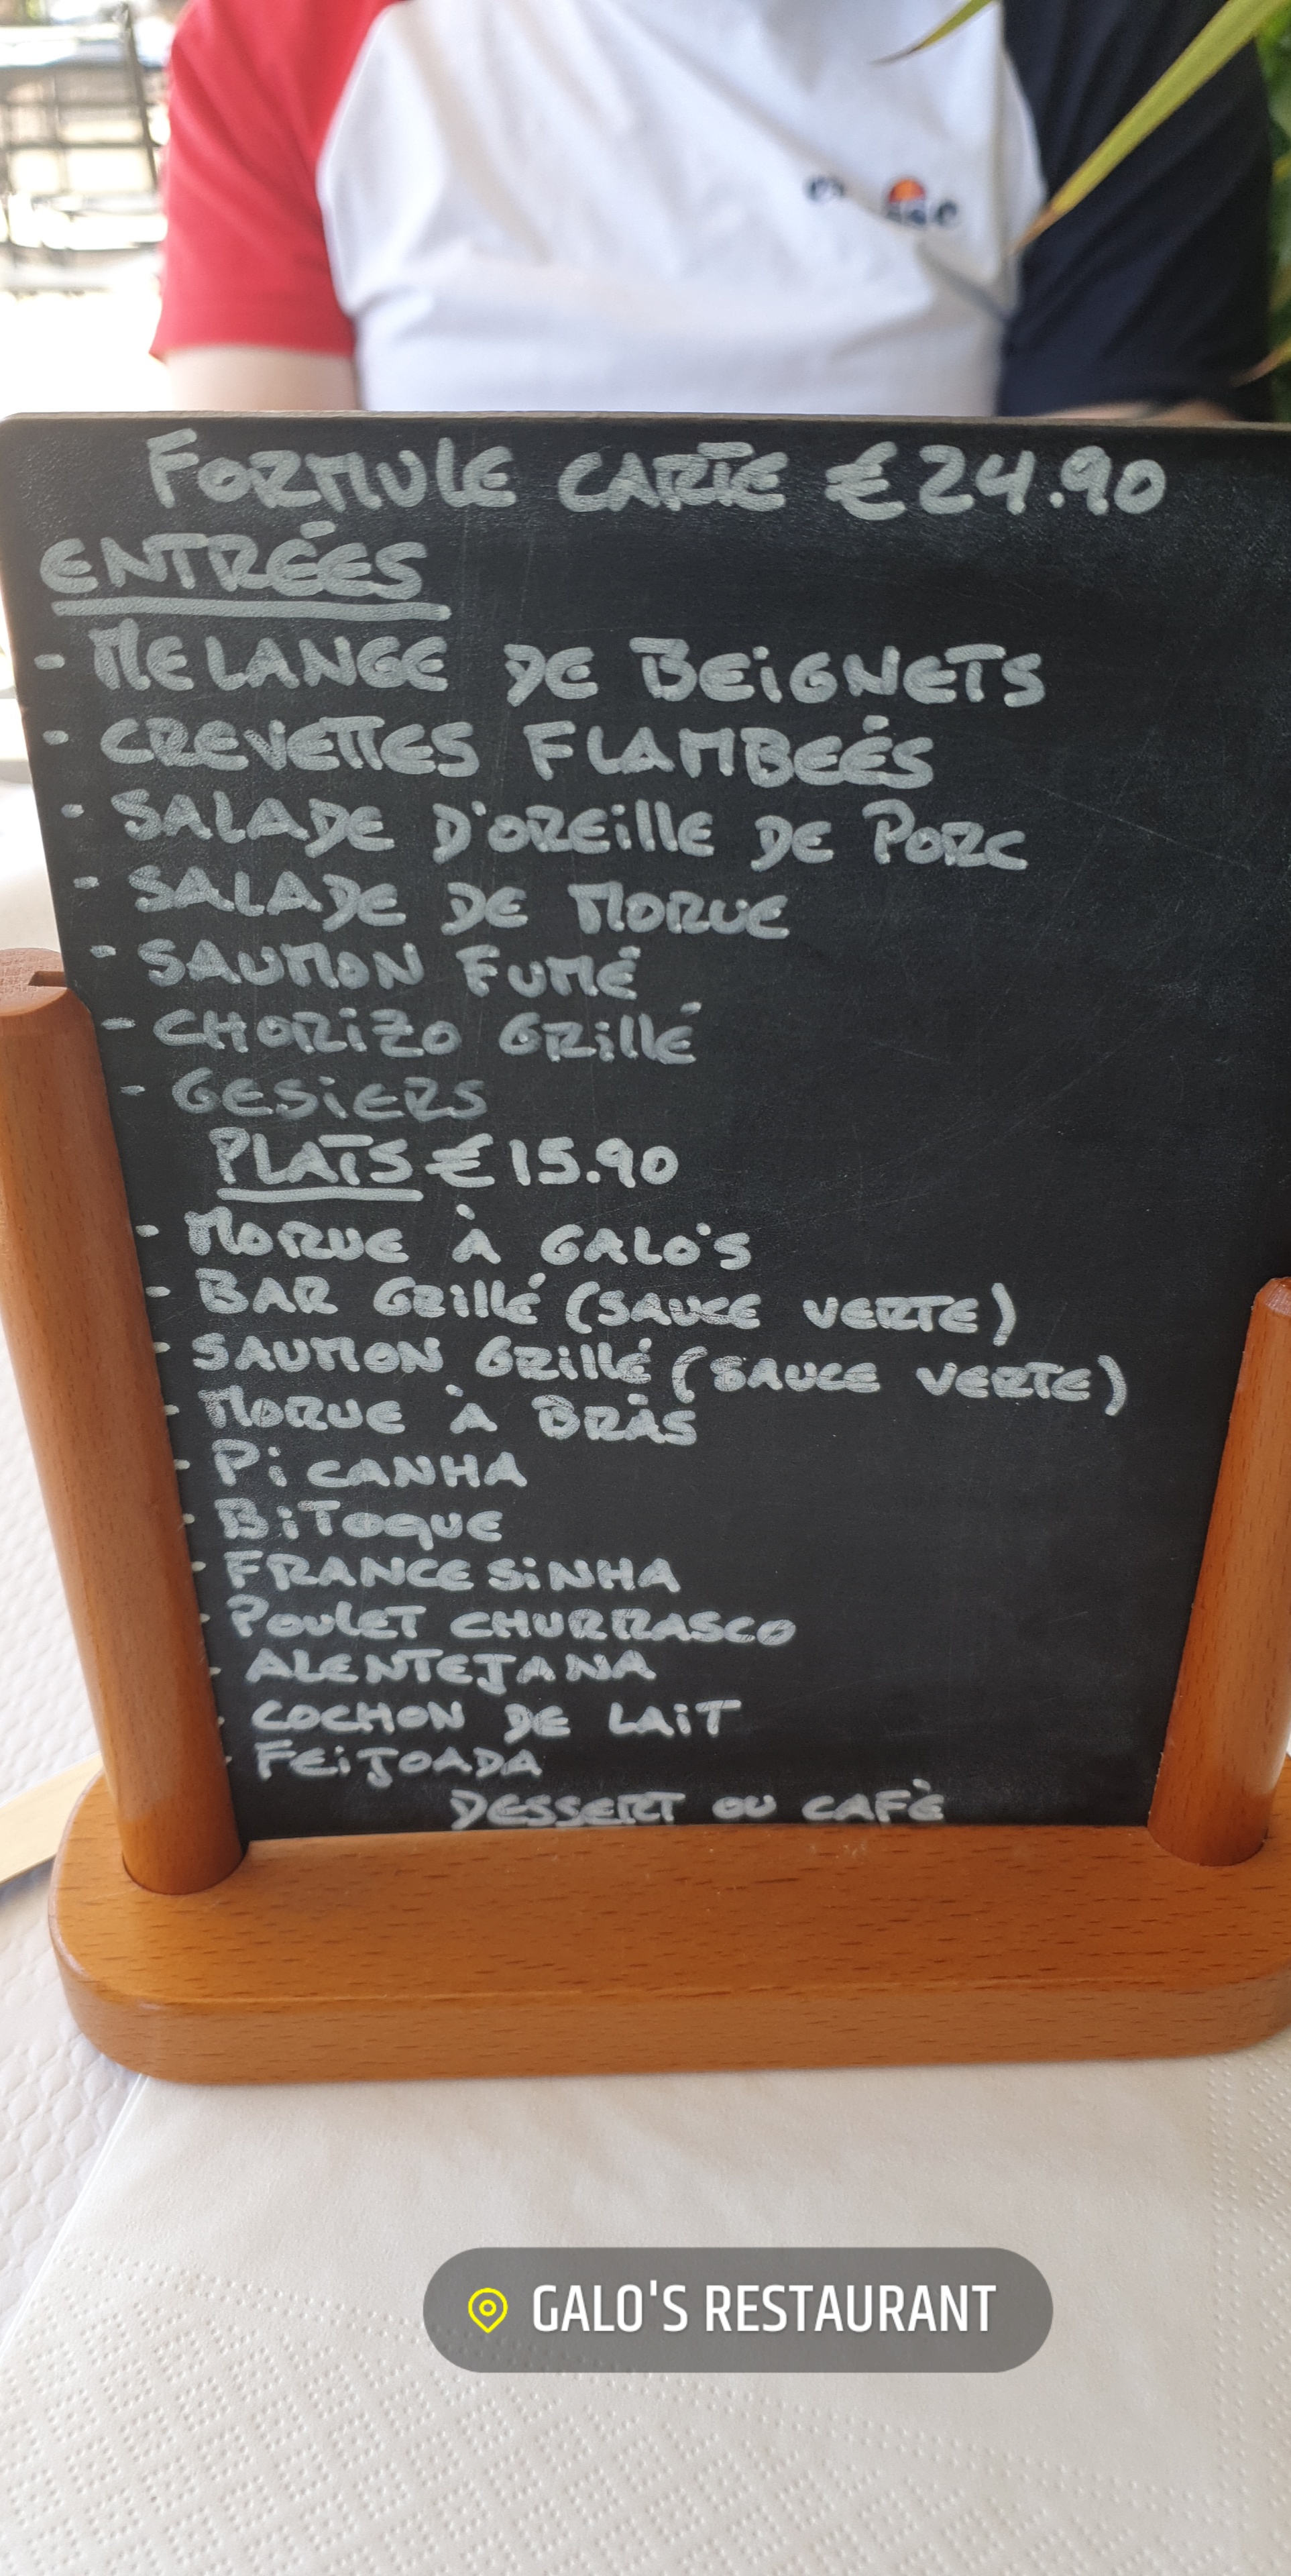 FORMULE CARTE €24.90
ENTRÉES
- MELANGE DE BEIGNETS
- CREVETTES FLAMBEÉS
- SALADE D'OREILLE DE PORC
- SALADE DE MORUE
- SAUMON FUMÉ
- CHORIZO GRILLÉ
- GESIERS
PLATS €15.90
- MORUE À GALO'S
- BAR GRILLÉ (SAUCE VERTE)
- SAUMON GRILLÉ (SAUCE VERTE)
- MORUE À BRÀS
- PICANHA
- BITOQUE
- FRANCESINHA
- POULET CHURRASCO
- ALENTEJANA
- COCHON DE LAIT
- FEIJOADA
DESSERT OU CAFÈ
GALO'S RESTAURANT